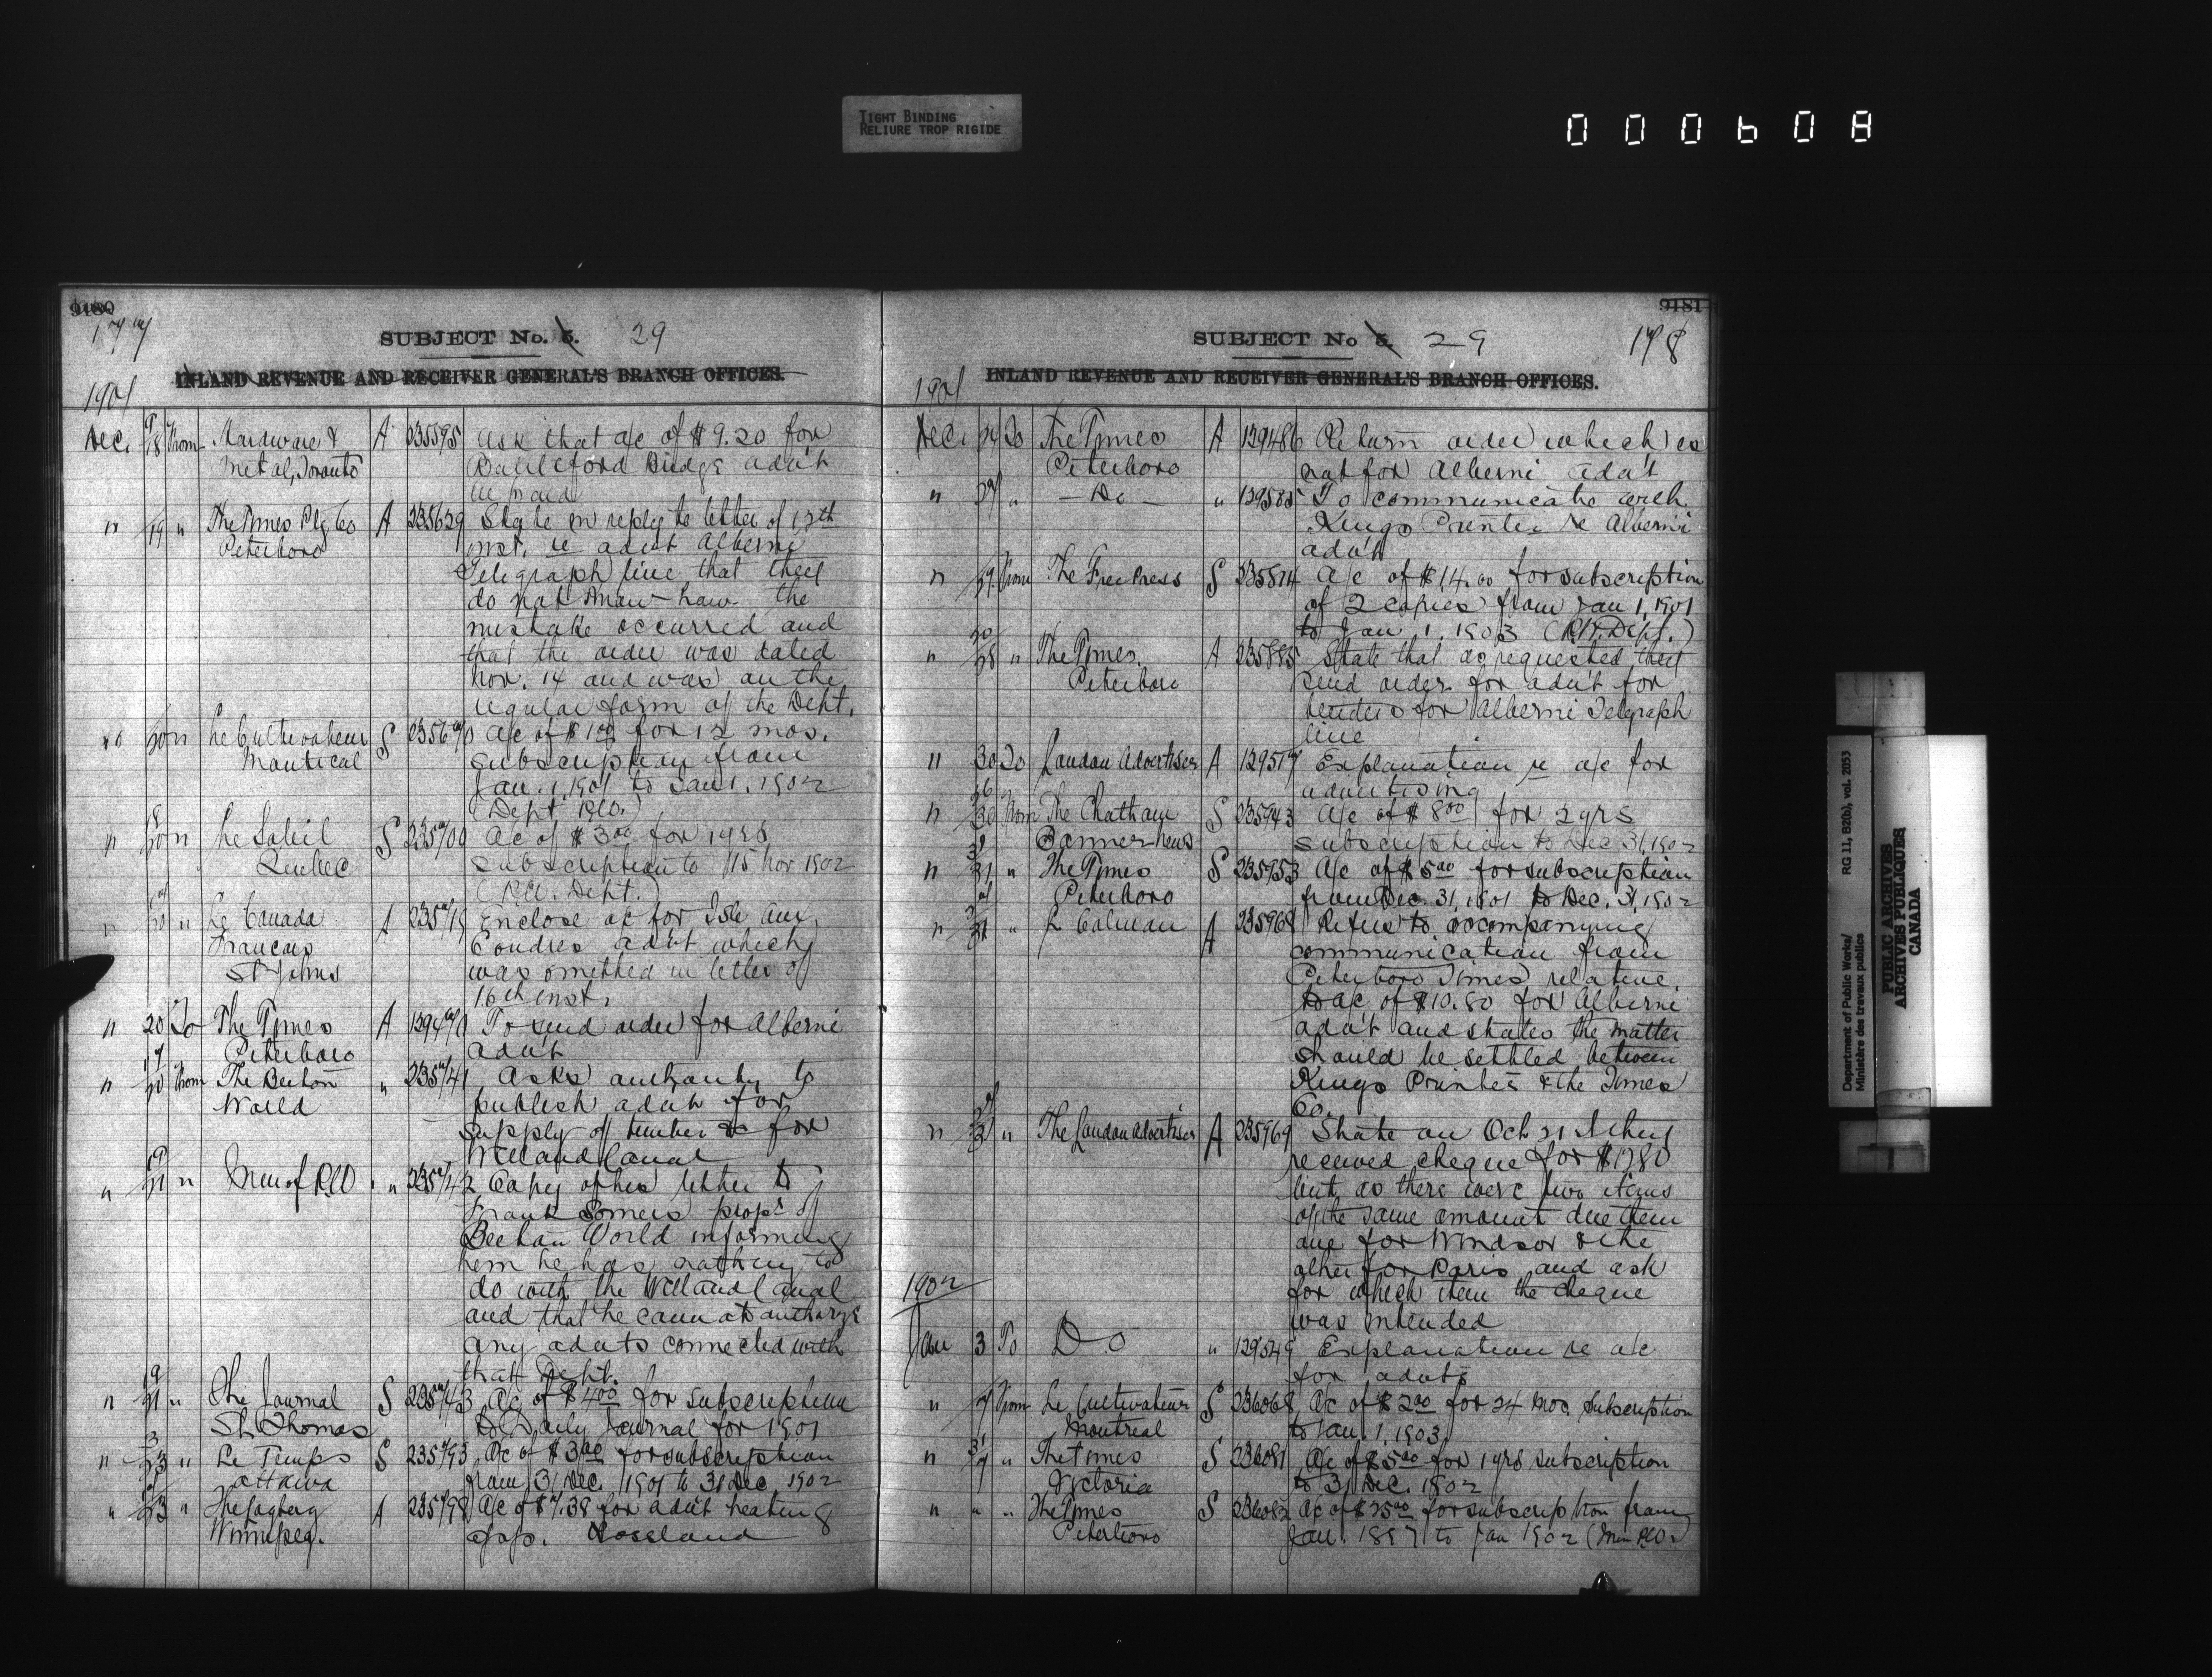 TIGHT BINDING
RELIURE TROP RIGIDE
000608
9180
177
SUBJECT No. 5. 29
INLAND REVENUE AND RECEIVER GENERAL'S BRANCH OFFICES.
1901
Dec. 9/18 From Hardware & A 235595 Ask that a/c of $9.20 for
Metal, Toronto Battleford Bridge adv't
be paid
" 19 " The Times Ptg Co A 235629 State in reply to letter of 17th
Peterboro inst. re advt Alberni
Telegraph line that they
do not know how the
mistake occurred and
that the order was dated
Nov. 14 and was on the
regular form of the Dept.
" 20 " Le Cultivateur S 235670 A/c of $1.00 for 12 mos.
Montreal subscription from
Jan. 1, 1901 to Jan 1, 1902
(Dept. P.W.)
" 20 " Le Soleil S 235700 Ac of $3.00 for 1 yrs
Quebec subscription to 15 Nov 1902
(P.W. Dept.)
" 20 " Le Canada A 235719 Enclose ac for Isle aux
Francais Coudres advt which
St Johns was omitted in letter of
16th inst.
" 20 To The Times A 129471 To send order for Alberni
Peterboro adv't
" 20 From The Beeton " 235741 Asks authority to
World publish advt for
supply of timber &c for
Welland Canal
" 21 " Min of P.W. " 235742 Copy of his letter to
Frank Somers propr of
Beeton World informing
him he has nothing to
do with the Welland Canal
and that he cannot authorize
any advts connected with
that Dept.
" 21 " The Journal S 235743 Ac of $4.00 for subscription
St. Thomas to Daily Journal for 1901
" 23 " Le Temps S 235793 Ac of $3.00 for subscription
Ottawa from 31 Dec. 1901 to 31 Dec. 1902
" 23 " The Logberg A 235798 Ac of $7.38 for advt heating
Winnipeg. app. Rossland
9181
SUBJECT No 5. 29 178
INLAND REVENUE AND RECEIVER GENERAL'S BRANCH OFFICES.
1901
Dec. 24 To The Times A 129486 Return order which is
Peterboro not for Alberni adv't
" 27 " — Do — " 129585 To communicate with
Kings Printer re Alberni
adv't
" 27 From The Free Press S 235814 A/c of $14.00 for subscription
of 2 copies from Jan 1, 1901
to Jan. 1. 1903 (P.W. Dept.)
" 28 " The Times A 235885 State that as requested they
Peterboro send order for adv't for
tenders for Alberni Telegraph
line
" 30 To London Advertiser A 129517 Explanation re a/c for
advertising
" 30 From The Chatham S 235943 A/c of $8.00 for 2 yrs
Banner News subscription to Dec 31, 1902
" 31 " The Times S 235953 A/c of $5.00 for subscription
Peterboro from Dec. 31, 1901 to Dec. 31, 1902
" 31 " L Colman A 235968 Refers to accompanying
communication from
Peterboro Times relative
to a/c of $10.80 for Alberni
adv't and states the matter
should be settled between
Kings Printer & the Times
Co.
" 31 " The London Advertiser A 235969 State on Oct 21st they
received cheque for $1280
but as there were two items
of the same amount due them
one for Windsor & the
other for Paris and ask
for which item the cheque
was intended
1902
Jan 3 To Do " 129549 Explanation re a/c
for advts
" 7 From Le Cultivateur S 236068 Ac of $2.00 for 24 mos subscription
Montreal to Jan. 1, 1903
" 7 " The Times S 236081 A/c of $5.00 for 1 yrs subscription
Victoria to 31 Dec. 1902
" " " The Times S 236082 Ac of $25.00 for subscription from
Peterboro Jan. 1897 to Jan 1902 (Min P.W.)
Department of Public Works/ RG 11, B2(b), vol. 2053
Ministère des travaux publics
PUBLIC ARCHIVES
ARCHIVES PUBLIQUES
CANADA